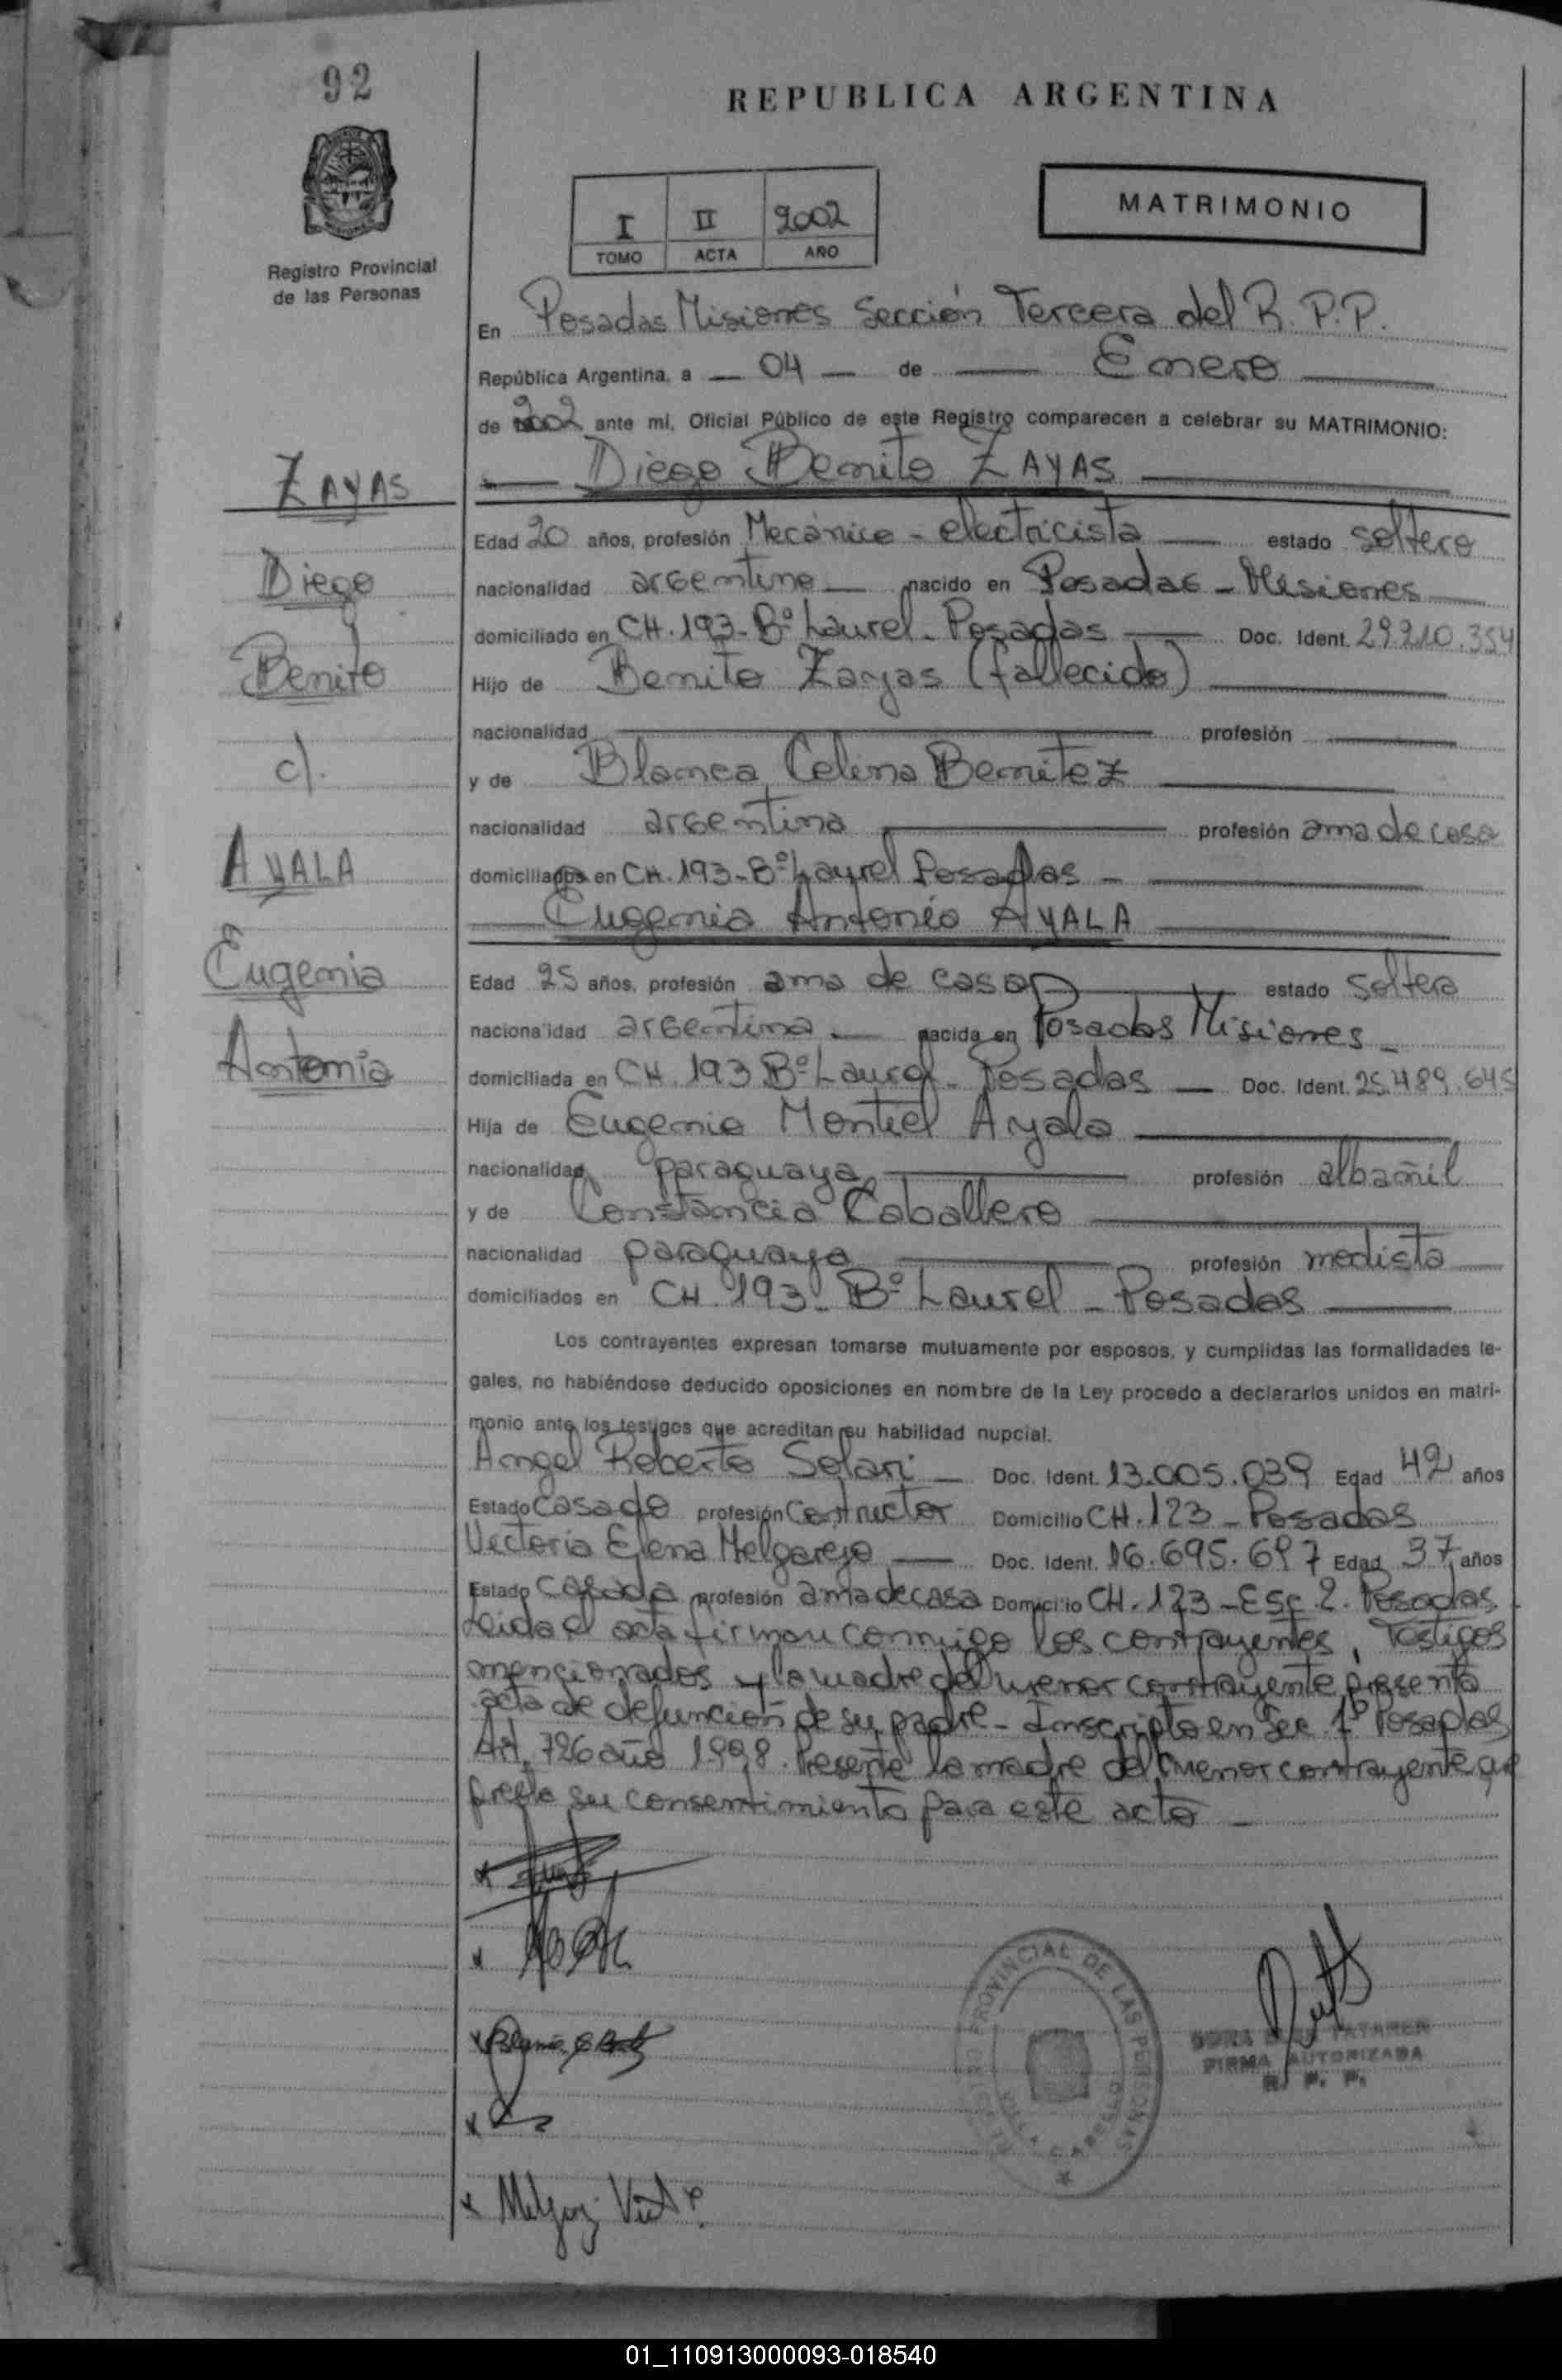 92
REPUBLICA ARGENTINA
Registro Provincial
de las Personas
I II 2002
TOMO ACTA AÑO
MATRIMONIO
En Posadas Misiones Sección Tercera del R.P.P.
República Argentina, a — 04 — de — Enero —
de 2002 ante mi, Oficial Público de este Registro comparecen a celebrar su MATRIMONIO:
ZAYAS
— Diego Benito ZAYAS —
Edad 20 años, profesión Mecánico - electricista — estado soltero
Diego
nacionalidad argentino — nacido en Posadas - Misiones —
domiciliado en CH. 193 - Bº Laurel - Posadas — Doc. Ident. 29.210.354
Benito
Hijo de Benito Zayas (fallecido) —
nacionalidad — profesión —
c/.
y de Blanca Celina Benitez —
nacionalidad argentina — profesión ama de casa
AYALA
domiciliados en CH. 193 - Bº Laurel Posadas - —
— Eugenia Antonia AYALA —
Eugenia
Edad 25 años, profesión ama de casa — estado soltera
nacionalidad argentina — nacida en Posadas Misiones -
Antonia
domiciliada en CH. 193 Bº Laurel - Posadas — Doc. Ident. 25.489.645
Hija de Eugenio Montiel Ayala —
nacionalidad paraguaya — profesión albañil
y de Constancia Caballero —
nacionalidad paraguaya — profesión modista —
domiciliados en CH. 193 - Bº Laurel - Posadas —
Los contrayentes expresan tomarse mutuamente por esposos, y cumplidas las formalidades le-
gales, no habiéndose deducido oposiciones en nombre de la Ley procedo a declararlos unidos en matri-
monio ante los testigos que acreditan su habilidad nupcial.
Angel Roberto Solari — Doc. Ident. 13.005.039 Edad 42 años
Estado casado profesión Contructor Domicilio CH. 123 - Posadas
Victoria Elena Melgarejo — Doc. Ident. 16.695.697 Edad 37 años
Estado Casada profesión ama de casa Domicilio CH. 123 - Esc 2. Posadas
Leida el acta firman conmigo los contrayentes, Testigos
mencionados y la madre del menor contrayente presenta
acta de defunción de su padre - Inscripto en Sec. 1º Posadas
Art. 726 año 1998. Presente la madre del menor contrayente que
presta su consentimiento para este acto -
REGISTRO PROVINCIAL DE LAS PERSONAS
VILLA CABELLO
FIRMA AUTORIZADA
R. P. P.
01_110913000093-018540